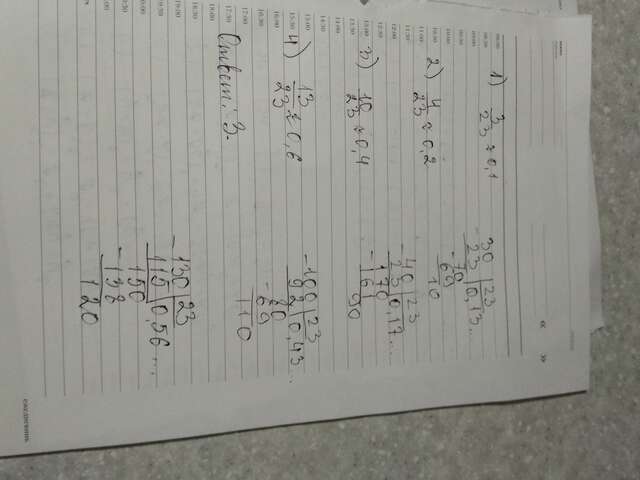 « »
1) 3/23 ≈ 0,1
30 | 23
- 23 | 0,13...
70
- 69
10
2) 4/23 ≈ 0,2
- 40 | 23
23 | 0,17...
170
- 161
90
3) 10/23 ≈ 0,4
- 100 | 23
92 | 0,43...
80
- 69
110
4) 13/23 ≈ 0,6
- 130 | 23
115 | 0,56...
150
- 138
120
Ответ: 3.
08:00
08:30
09:00
09:30
10:00
10:30
11:00
11:30
12:00
12:30
13:00
13:30
14:00
14:30
15:00
15:30
16:00
16:30
17:00
17:30
18:00
18:30
19:00
19:30
20:00
ежедневник